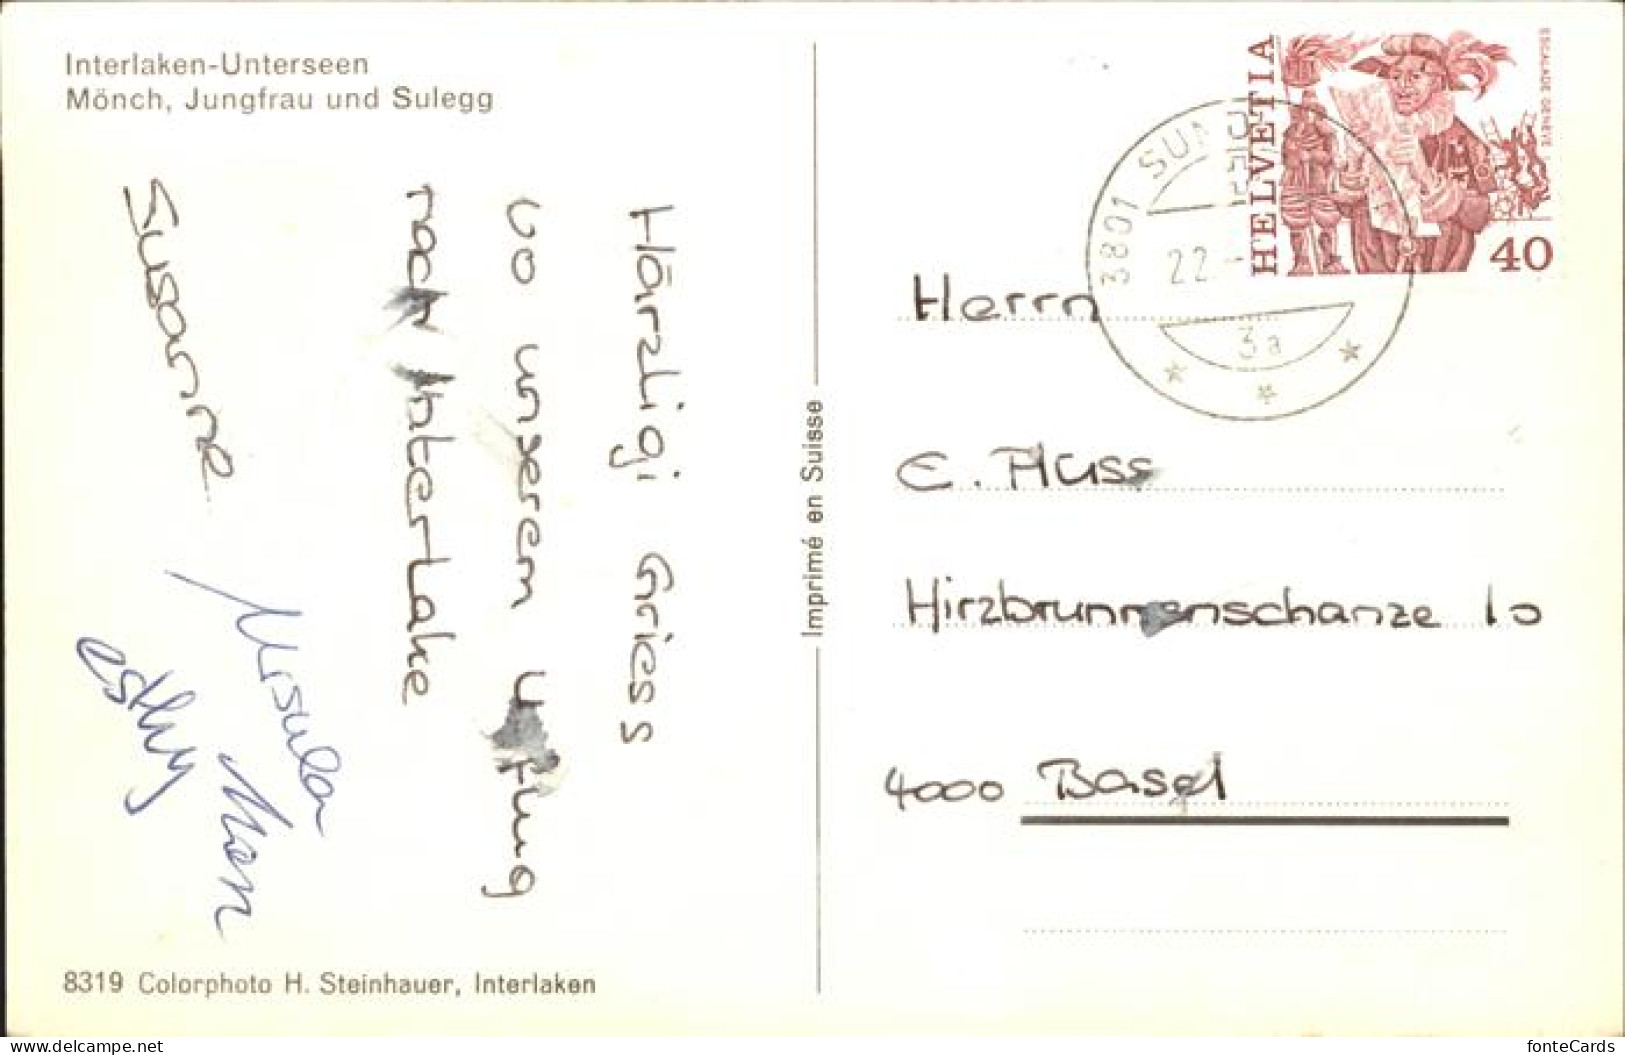 Interlaken-Unterseen
Mönch, Jungfrau und Sulegg
Härzligi Griess
vo unserem Usflug
nach Interlake
Susanne
Ursula
esthy
8319 Colorphoto H. Steinhauer, Interlaken
Imprimé en Suisse
HELVETIA
ESCALADE GENEVE
40
3801
22.
3a
Herrn
E. Fluss
Hirzbrunnenschanze 10
4000 Basel
delcampe.net
fonteCards